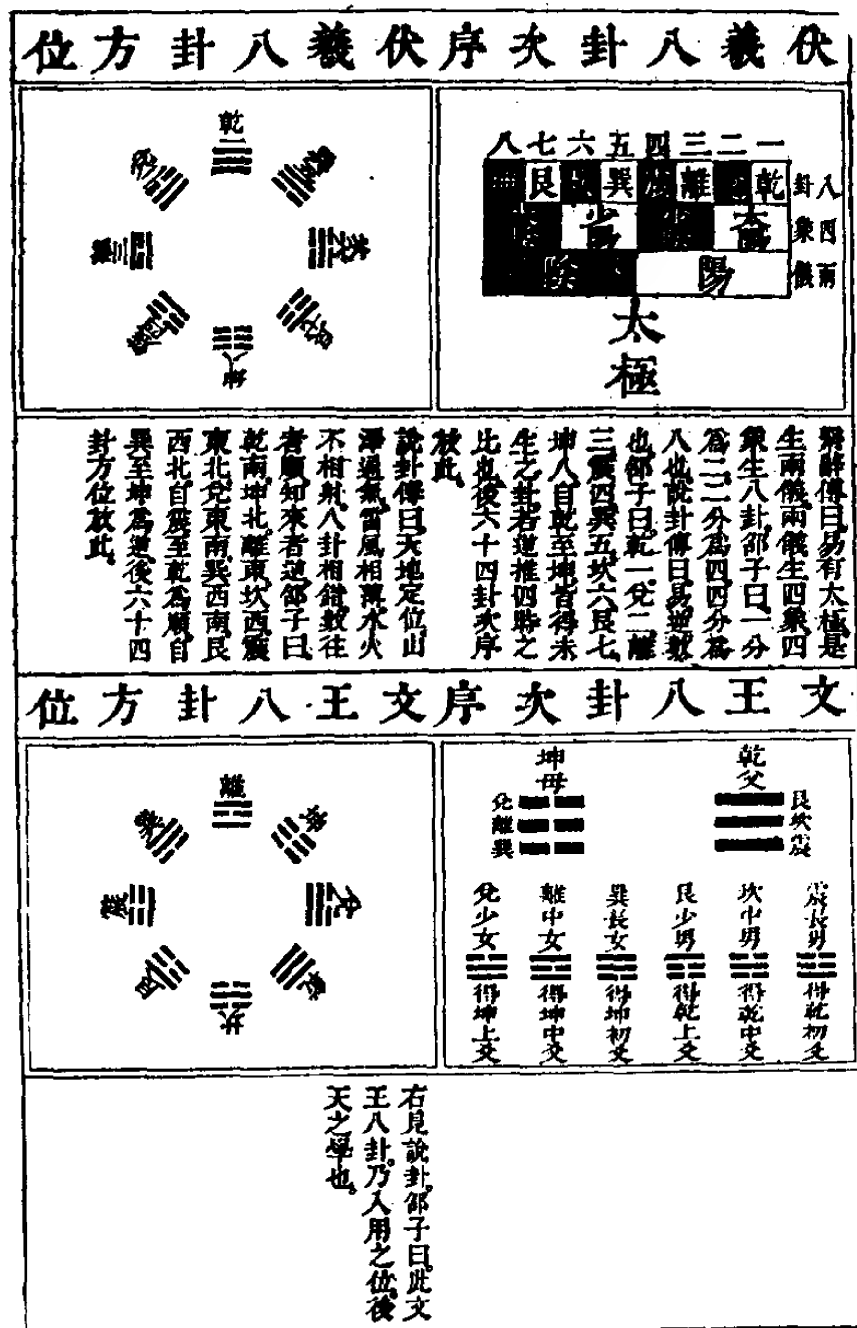 伏羲八卦次序
一二三四五六七八
八卦
乾
離
巽
艮
四象
太陽
少陽
兩儀
陽
陰
太極
伏羲八卦方位
乾一
巽五
坎六
艮七
坤八
離三
繫辭傳曰、易有太極、是
生兩儀、兩儀生四象、四
象生八卦、邵子曰、一分
爲二、二分爲四、四分爲
八也、說卦傳曰、易、逆數
也、邵子曰、乾一、兌二、離
三、震四、巽五、坎六、艮七、
坤八、自乾至坤、皆得未
生之卦、若逆推四時之
比也、後六十四卦次序
放此。
說卦傳曰、天地定位、山
澤通氣、雷風相薄、水火
不相射、八卦相錯、數往
者順、知來者逆、邵子曰、
乾南、坤北、離東、坎西、震
東北、兌東南、巽西南、艮
西北、自震至乾爲順、自
巽至坤爲逆、後六十四
卦方位放此。
文王八卦次序
乾父
艮坎震
坤母
兌離巽
震長男 得乾初爻
坎中男 得乾中爻
艮少男 得乾上爻
巽長女 得坤初爻
離中女 得坤中爻
兌少女 得坤上爻
文王八卦方位
離
坤
兌
乾
坎
艮
震
巽
右見說卦。邵子曰、此文
王八卦。乃入用之位、後
天之學也。